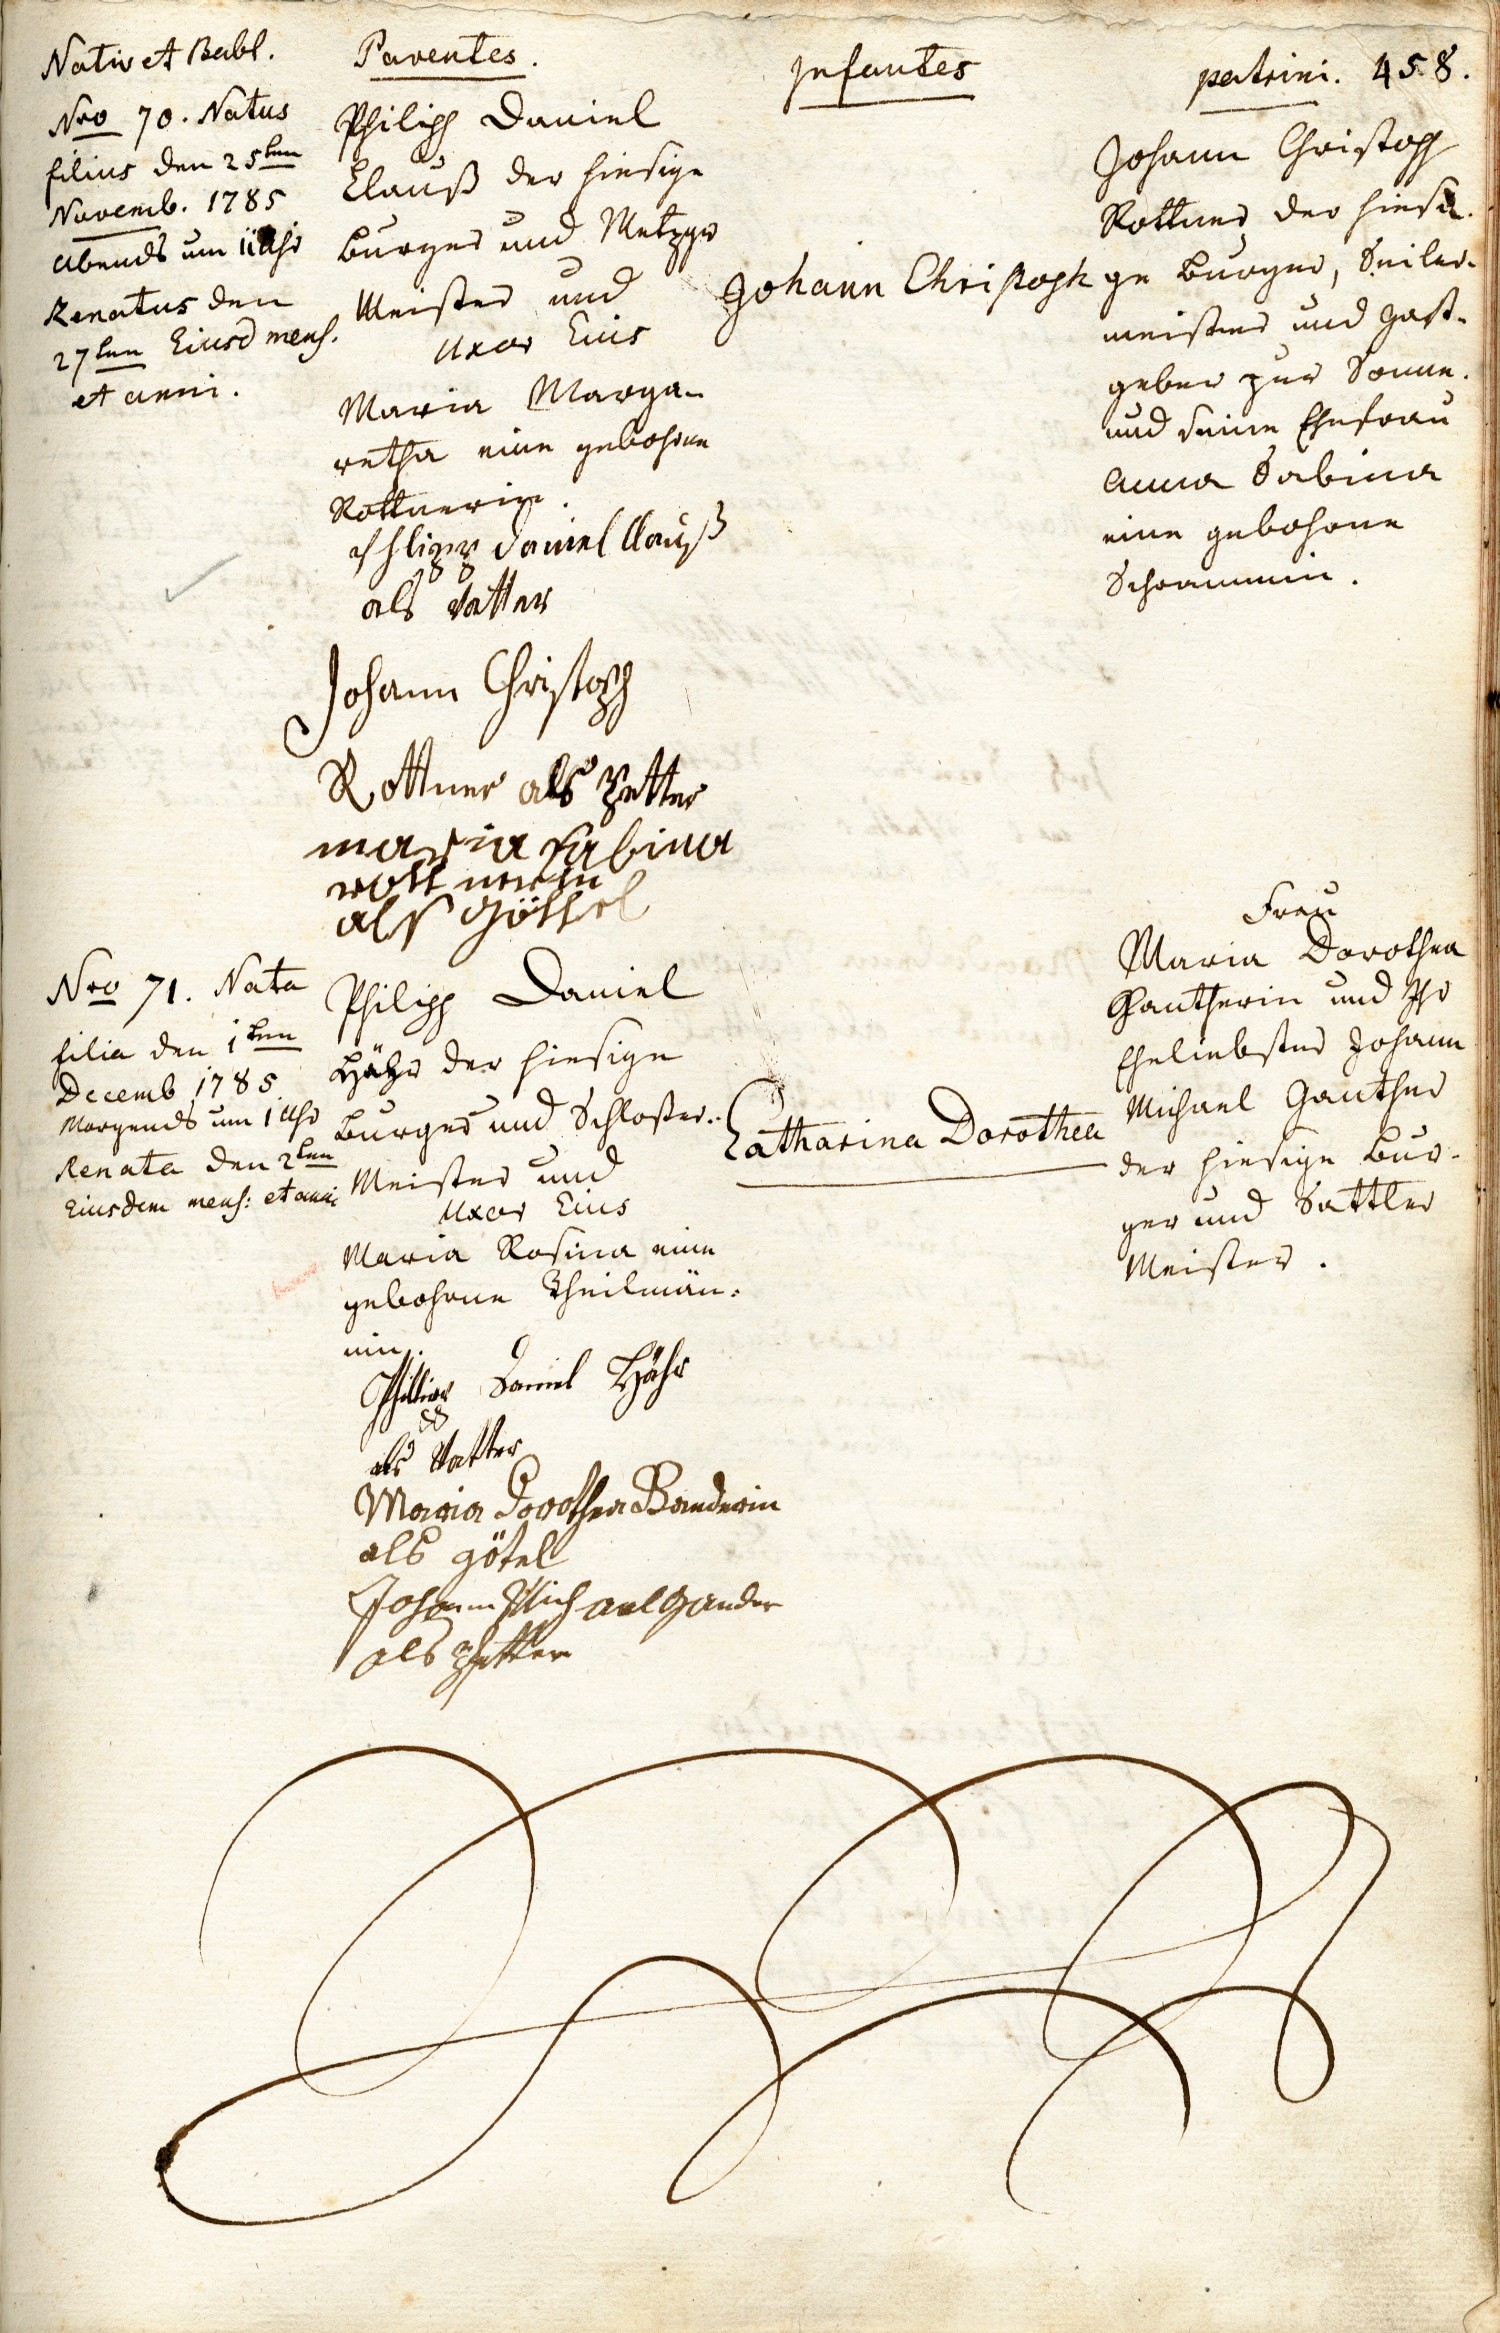 Nativ et Babt.
Parentes.
Infantes
patrini. 458.
Nro 70. Natus
filius den 25ten
Novemb. 1785
abends um 11 Uhr
Renatus den
27ten Eiusd mens.
et anni.
Philipp Daniel
Clauß der hiesige
Burger und Metzger
Meister und
Uxor Eius
Maria Marga-
retha eine gebohrne
Rottnerin.
Philipp Daniel Clauß
als Vatter
Johann Christoph
Rottner als Petter
maria Sabina
rottnerin
als Göttel
Johann Christoph
Johann Christoph
Rottner der hiesi-
ge Burger, Seiler-
meister und Gast-
geber zur Sonne.
und seine Ehefrau
Anna Sabina
eine gebohrne
Schrammin.
Nro 71. Nata
filia den 1ten
Decemb 1785
Morgends um 1 Uhr
Renata den 2ten
Eiusdem mens: et anni
Philipp Daniel
Hähr der hiesige
Burger und Schloßer-
Meister und
Uxor Eius
Maria Rosina eine
gebohrne Theilmän-
nin.
Philipp Daniel Hähr
als Vatter
Maria Dorothea Banderin
als götel
Johann Michael Gander
als pfetter
Catharina Dorothea
Frau
Maria Dorothea
Gantherin und Ihr
Eheliebster Johann
Michael Ganther
der hiesige Bur-
ger und Sattler
Meister.